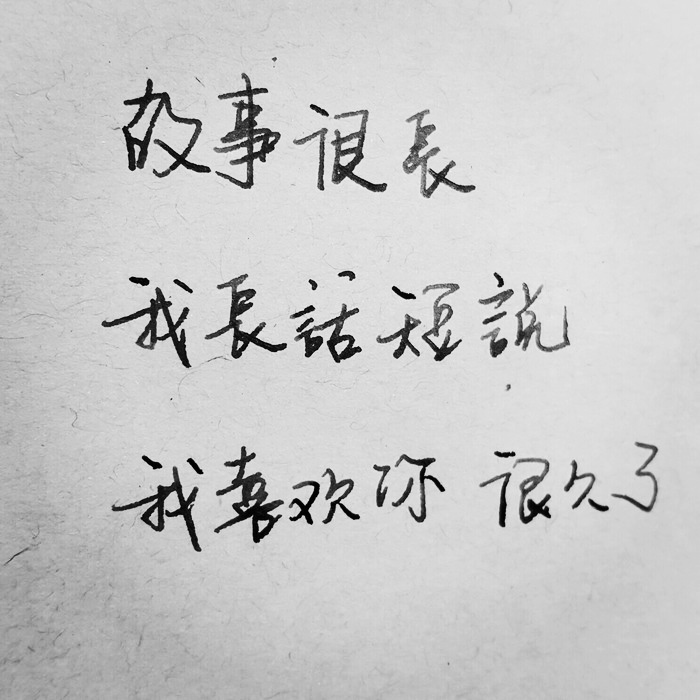 故事很長
我長話短説
我喜欢你 很久了